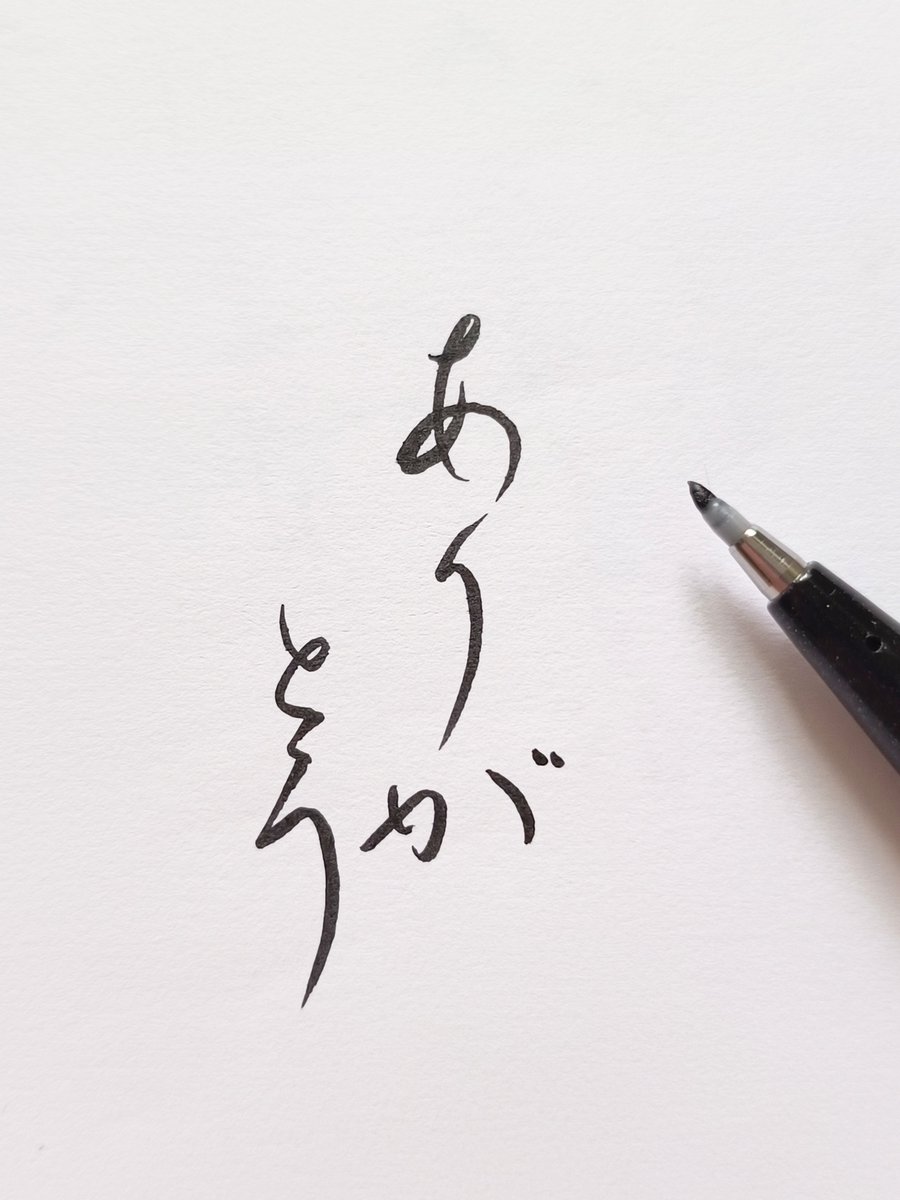 ありが
とう